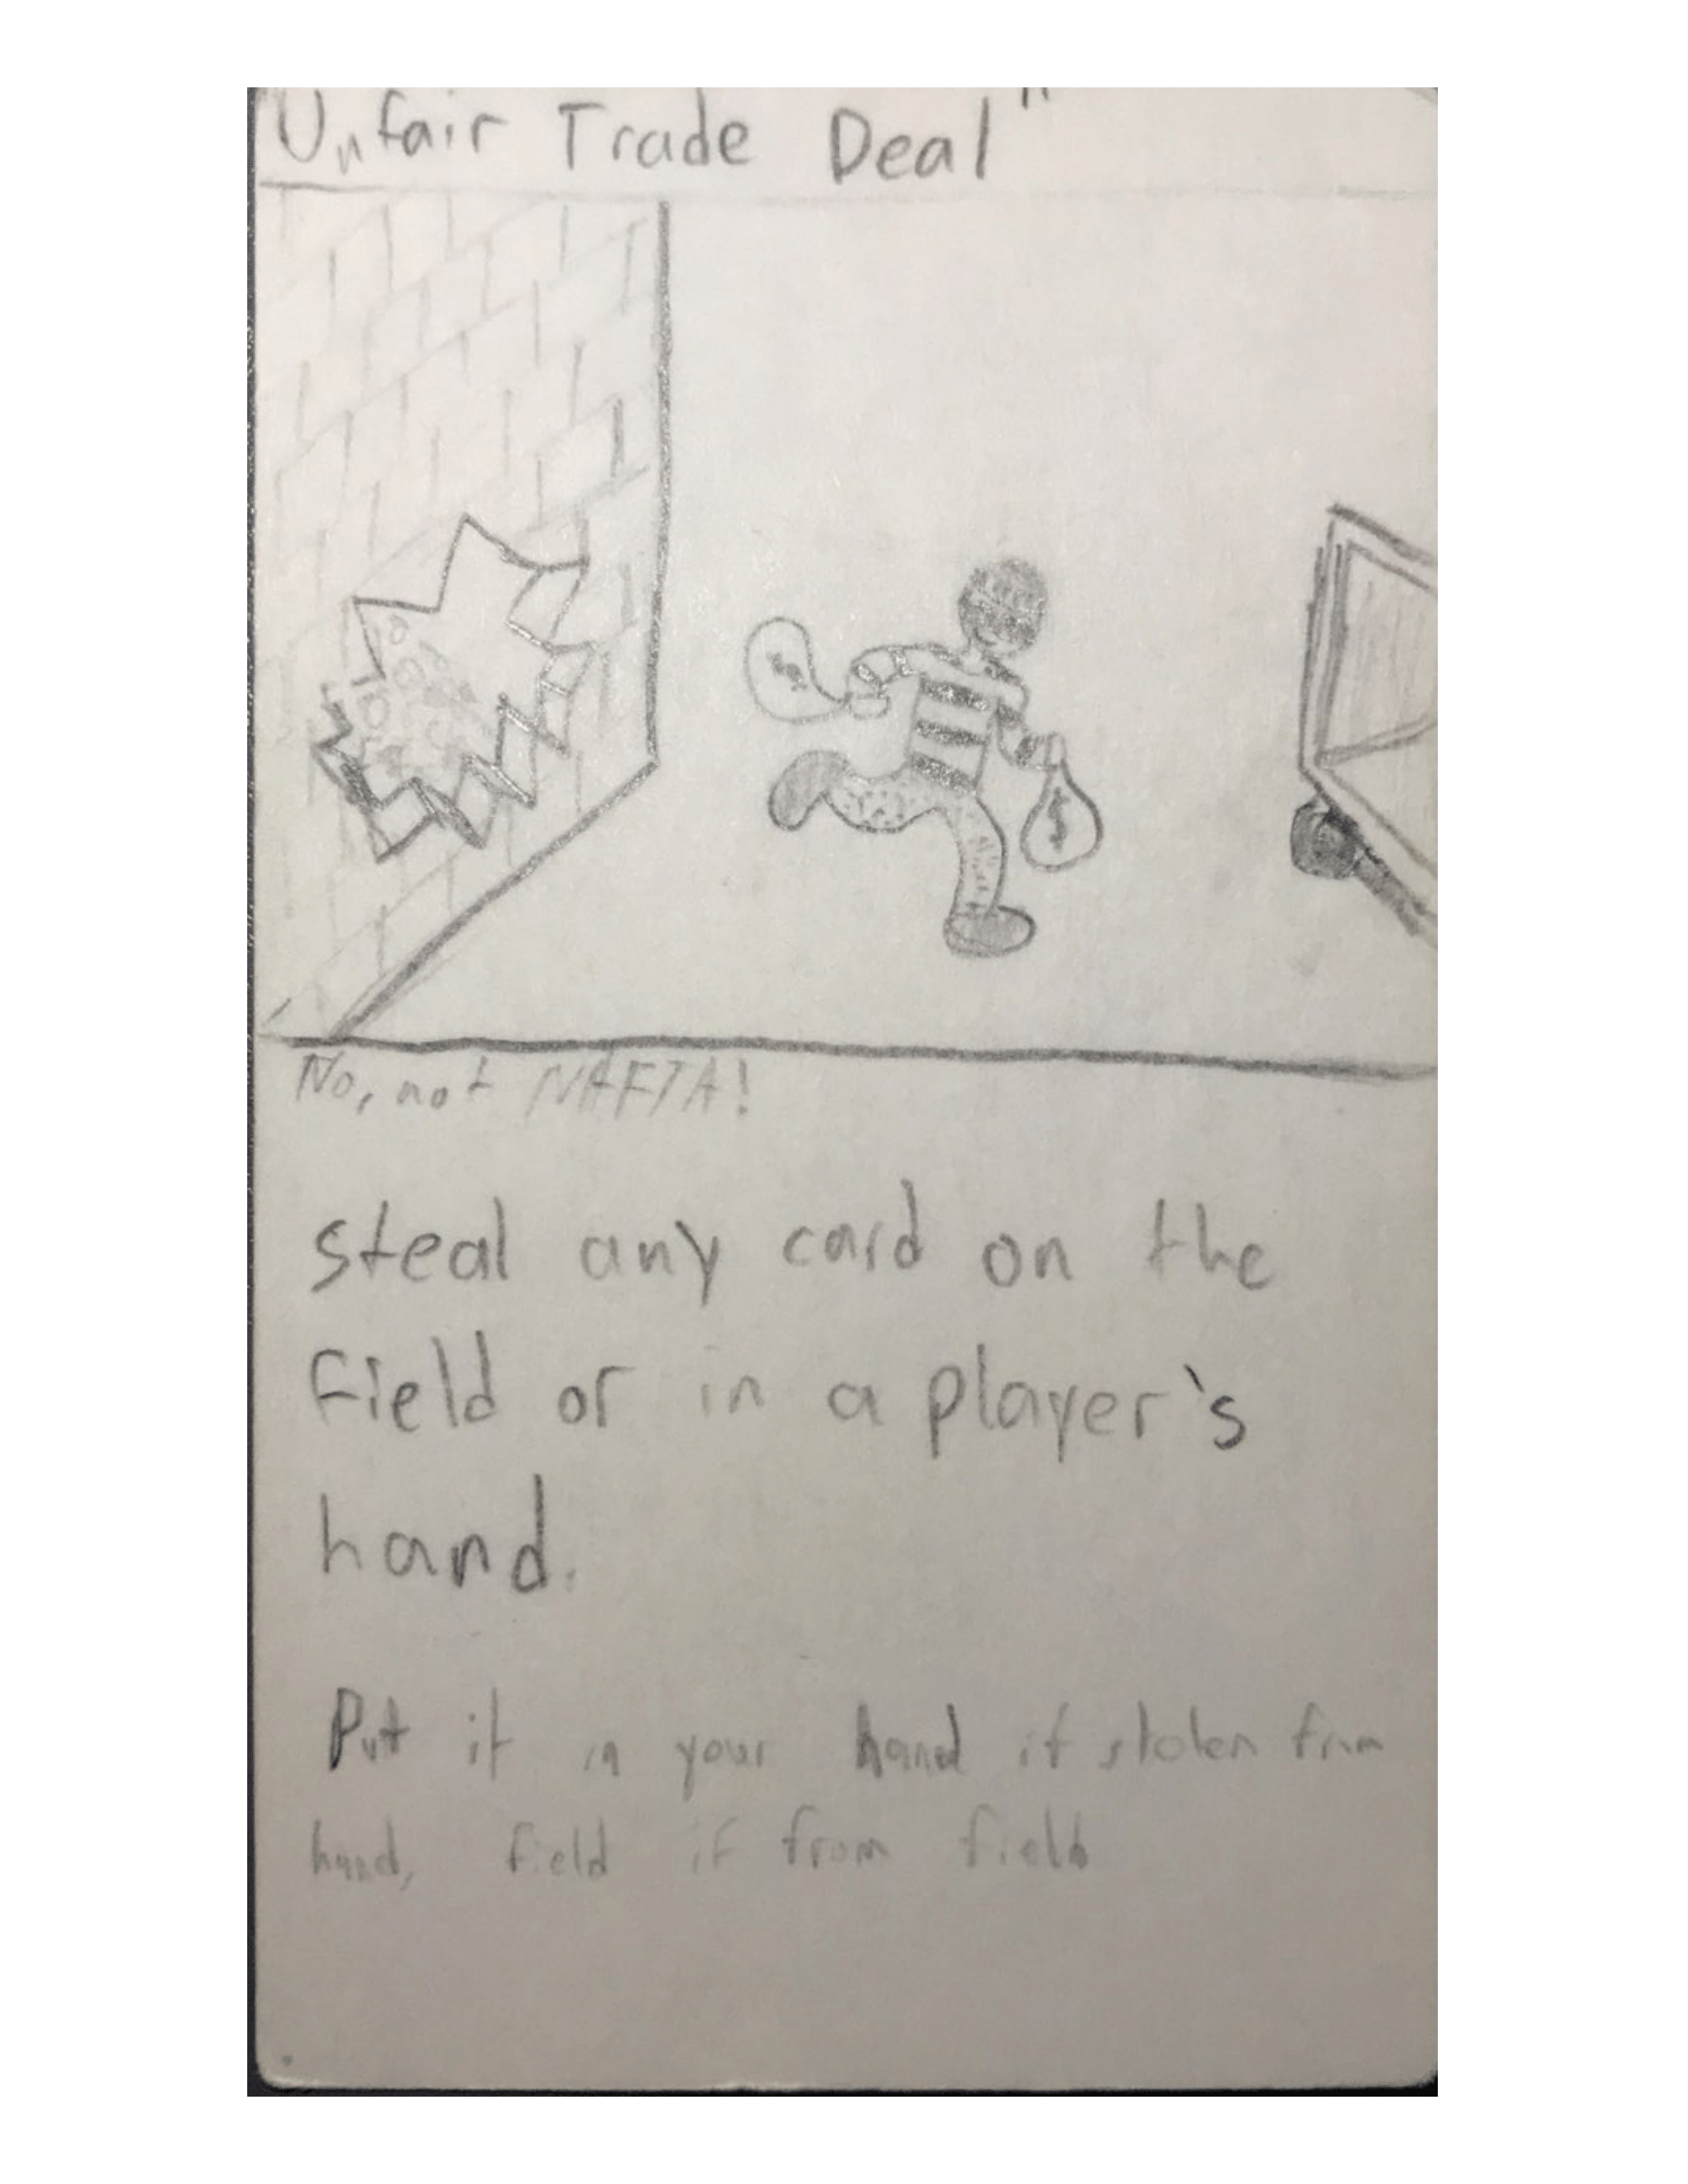 "Unfair Trade Deal"
$
$
No, not NAFTA!
steal any card on the
field or in a player's
hand.
Put it in your hand if stolen from
hand, field if from field